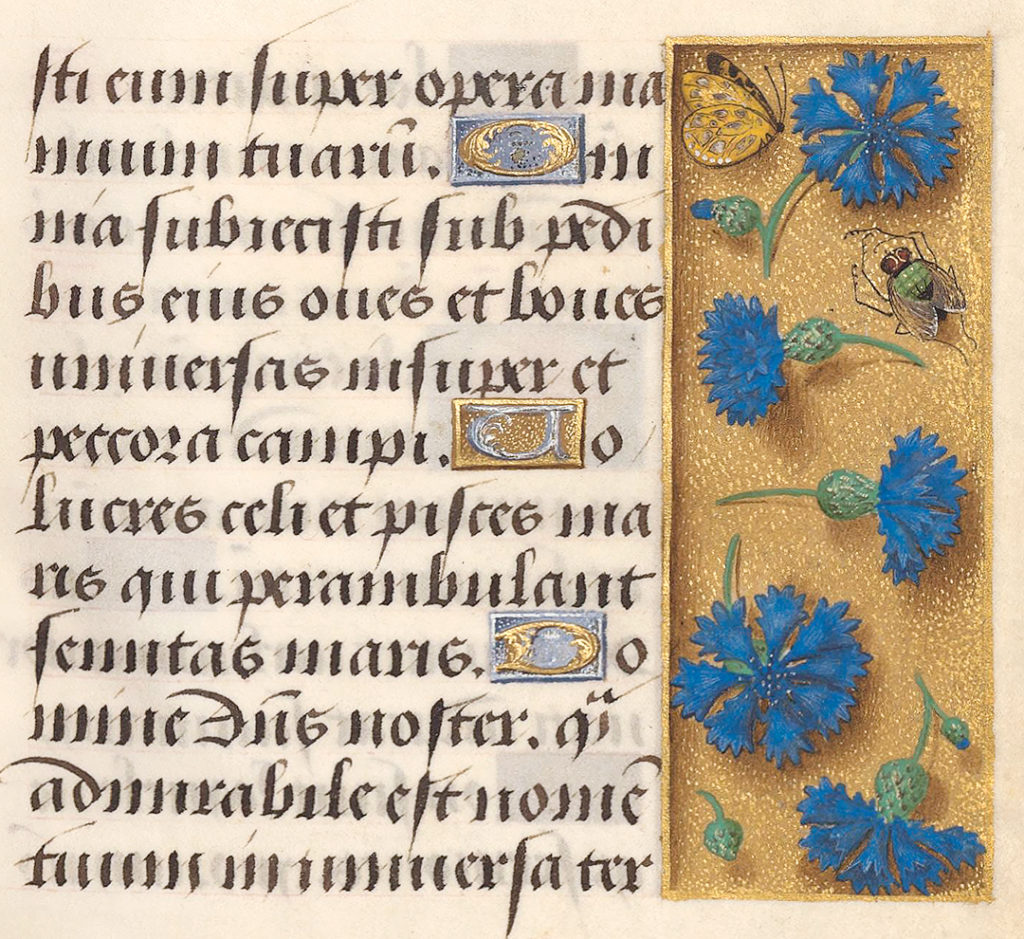 sti eum super opera ma
nuum tuarū. Om
nia subiecisti sub pedi
bus eius oues et boues
uniuersas insuper et
peccora campi. Uo
lucres celi et pisces ma
ris qui perambulant
semitas maris. Do
mine dn̄s noster. qͣ
admirabile est nomē
tuum in uniuersa ter